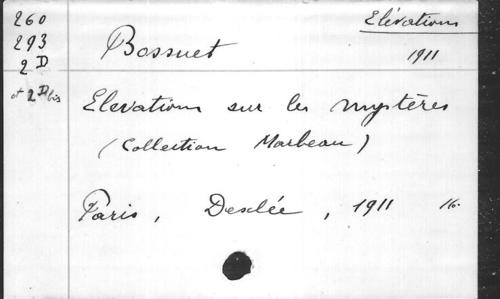 260
293
2 D
et 2 D bis
Elévations
Bossuet
1911
Elevations sur les mystères
(Collection Marbeau)
Paris, Desclée, 1911 16.